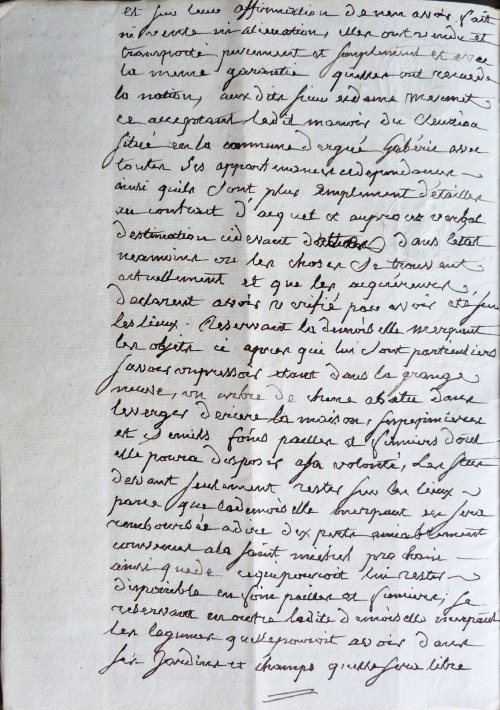 et sur leur affirmation de n'en avoir fait
ni vente ni alienation, elles ont vendu et
transporté purement et simplement et avec
la meme garantie quelles ont reçue de
la nation, aux dits sieur et dame Mermet
ce acceptant ledit manoir du Cleuziou
situé en la commune d'ergué Gabéric avec
toutes ses appartenances et dependances
ainsi quils sont plus emplement détaillés
au contrait d'aquet et au procez verbal
d'estimation cidevant dans l'etat
neanmoins ou les choses se trouvent
actuellement et que les acquereurs
declarent avoir verifié pour avoir eté sur
les lieux. Reservant la demoiselle merpaut
les objets ci apres qui lui sont particuliers
savoir un pressoir etant dans la grange
neuve, un arbre de chene abatu dans
le verger deriere la maison, ses pepinieres
et semils foins pailles et fumiers dont
elle poura disposer a sa volonté, les
devant seulement rester sur les lieux
parce que lademoiselle merpaut en sera
remboursée a dire d'experts amiablement
convenus a la saint michel prochain
ainsi que de ce qui pouroit lui rester
disponible en foin pailles et fumiers; se
reservant en outre ladite demoiselle merpaut
les legumes quelle pouroit avoir dans
ses jardins et champs quelle sera libre